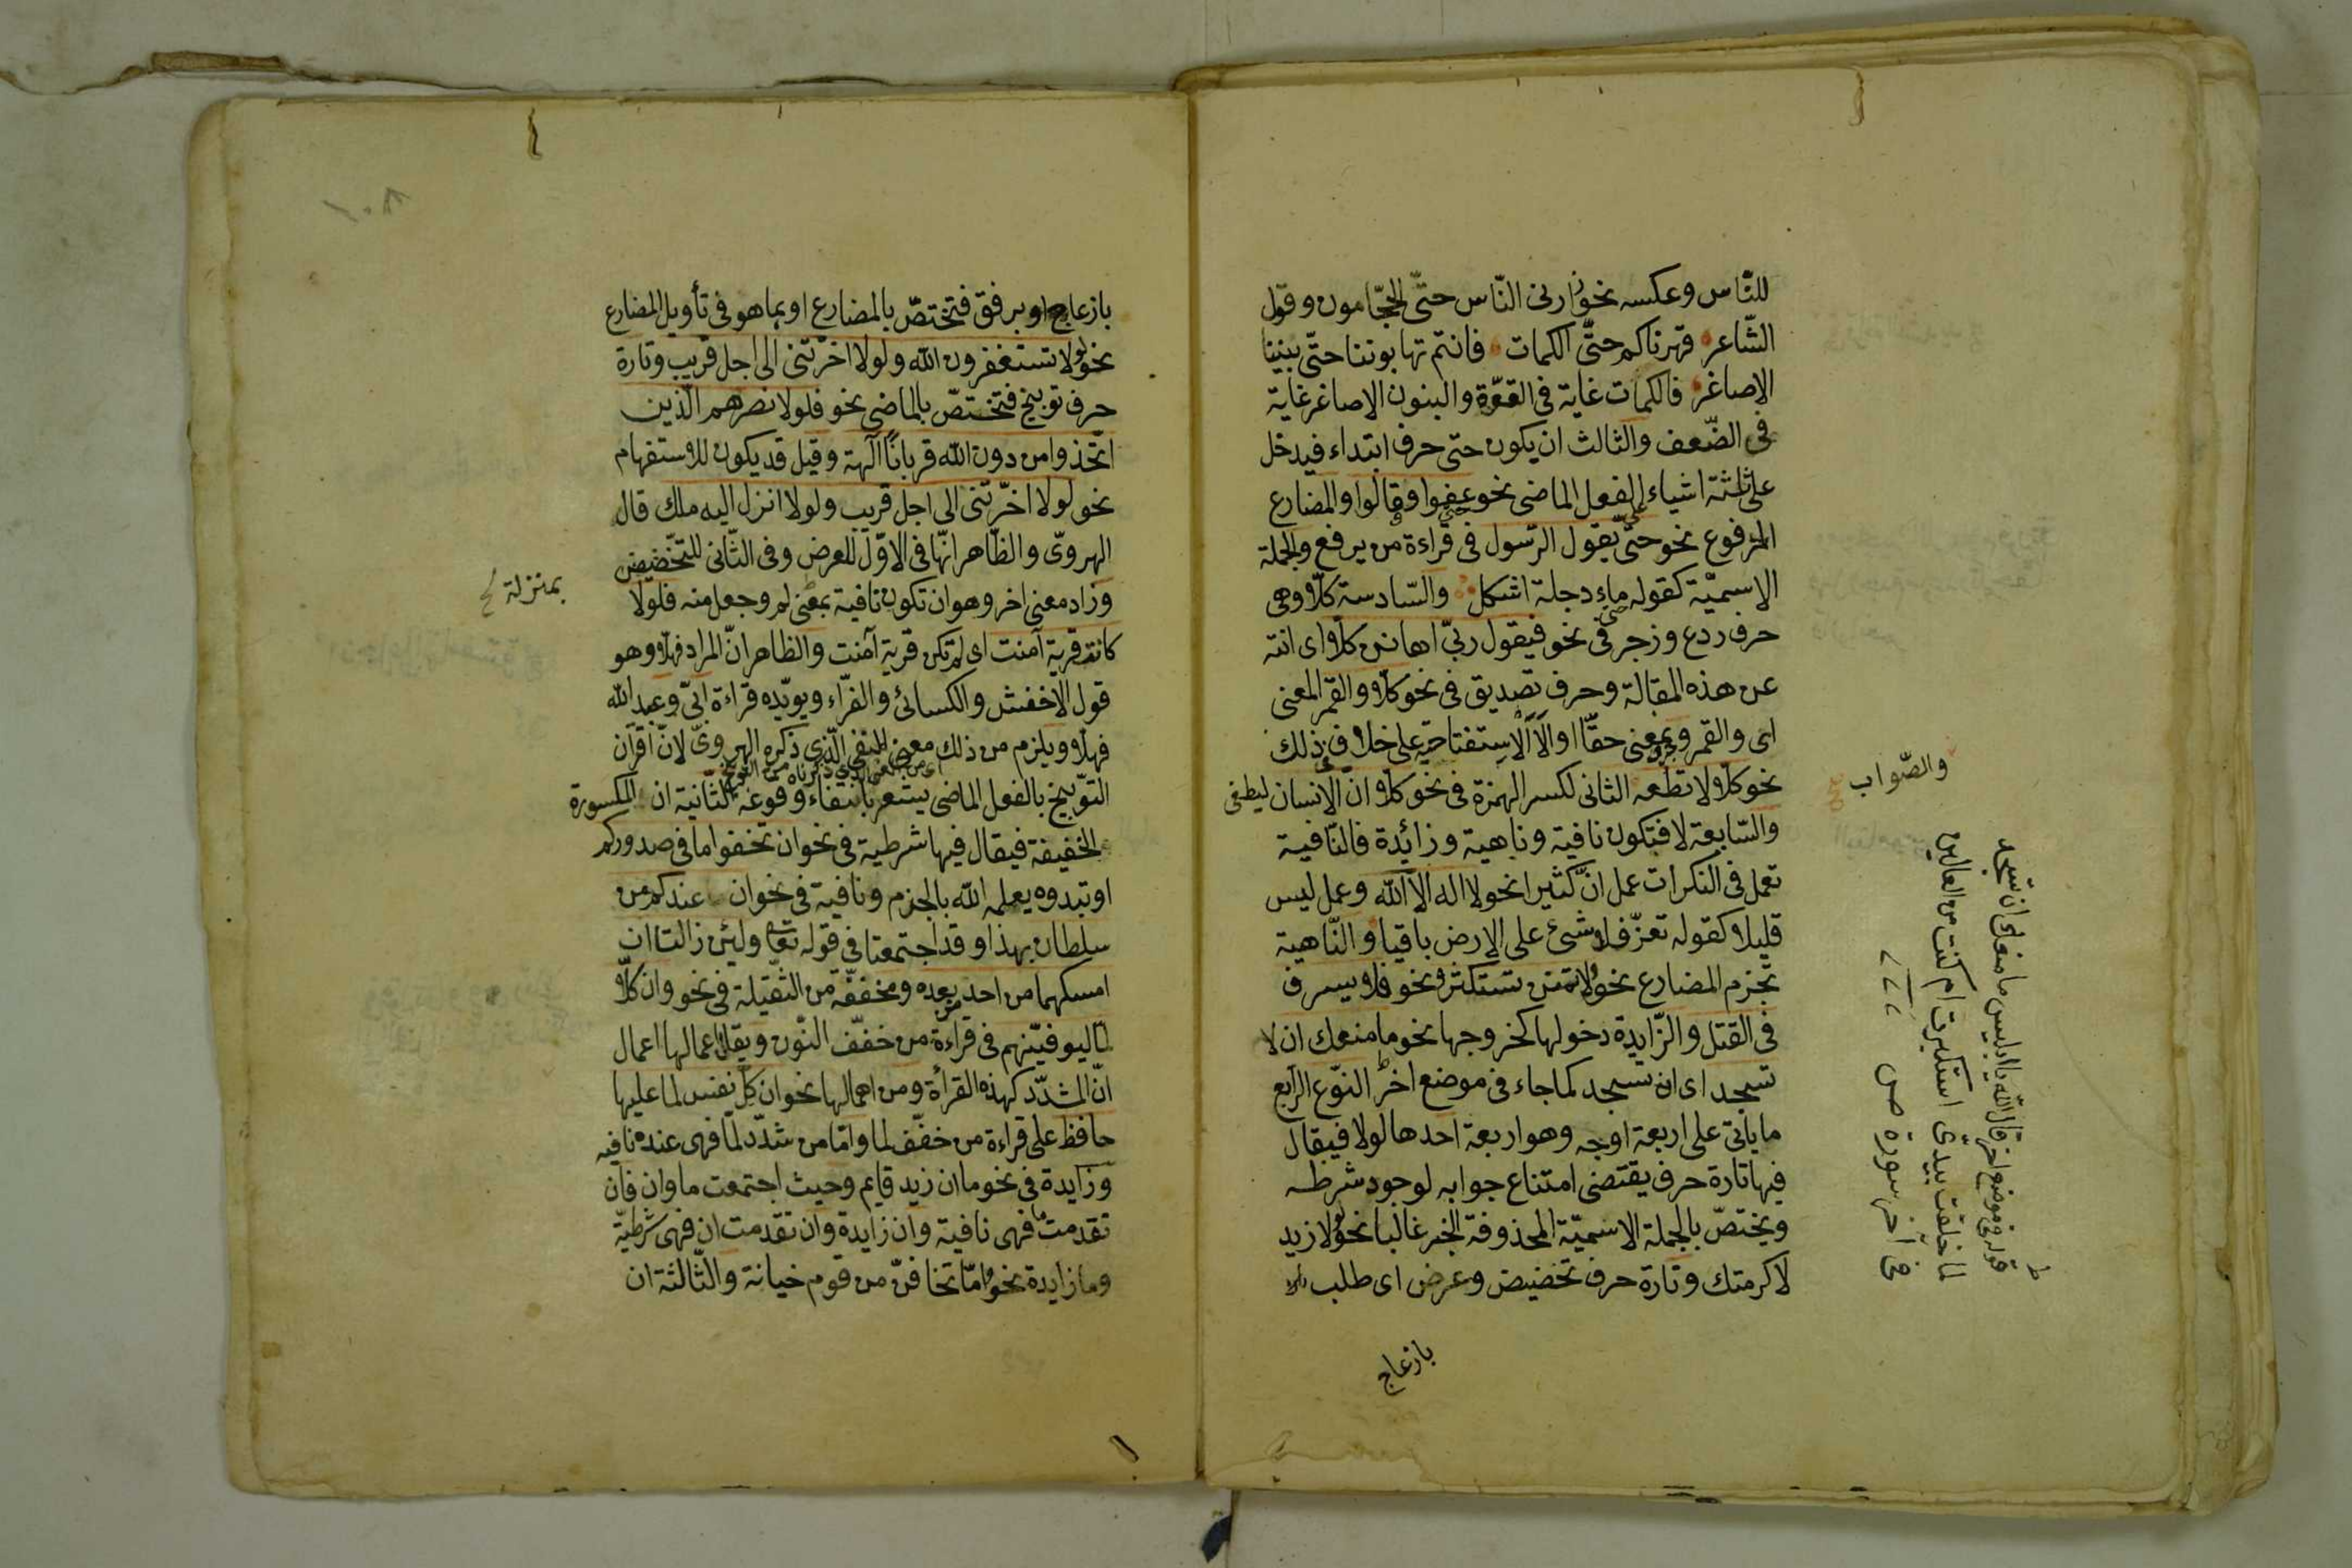 للنّاس وعكسه نحو زارنی النّاس حتّى الحجّامون وقول
الشّاعر قهرناكم حتّى الكمات فانتم تهابوننا حتّى بنينا
الاصاغر فالكمات غاية فی القوّة والبنون الاصاغر غاية
فی الضّعف والثالث ان يكون حتى حرف ابتداء فيدخل
على ثلثة اشياء الفعل الماضی نحو حتى عفوا وقالوا والمضارع
المرفوع نحو حتّى يقول الرّسول فی قراءة من يرفع والجملة
الاسميّة كقوله حتى ماء دجلة اشكل والسّادسة كلّا وهی
حرف ردع وزجر فی نحو فيقول ربّی اهانن كلّا ای انته
عن هذه المقالة وحرف تصديق فی نحو كلّا والقمر المعنى
ای والقمر وبمعنى حقّا او ألا الاستفتاحيه على خلاف فی ذلك
نحو كلّا لا تطعه الثانی لكسر الهمزة فی نحو كلّا انّ الانسان ليطغى
والسّابعة لا فتكون نافية وناهية وزائدة فالنّافية
تعمل فی النكرات عمل انّ كثيرا نحو لا اله الّا الله وعمل ليس
قليلا كقوله تعزّ فلا شئ على الارض باقيا والنّاهية
تجزم المضارع نحو ولا تمنن تستكثر ونحو فلا يسرف
فی القتل والزّايدة دخولها كخروجها نحو ما منعك ان لا
تسجد ای ان تسجد كما جاء فی موضع اخر النوّع الرّابع
ما ياتی على اربعة اوجه وهو اربعة احدها لولا فيقال
فيها تارة حرف يقتضی امتناع جوابه لوجود شرطه
ويختصّ بالجملة الاسميّة المحذوفة الخبر غالبا نحو لولا زيد
لاكرمتك وتارة حرف تحضيض وعرض ای طلب
بازعاج
والصّواب
قوله فی موضع اخر قال الله يا ابليس ما منعك ان تسجد
لما خلقت بيدیّ استكبرت ام كنت من العالين
فی آخر سورة ص
بازعاج او برفق فتختصّ بالمضارع او بما هو فی تأويل المضارع
نحو لولا تستغفرون الله ولولا اخّرتنی الى اجل قريب وتارة
حرف توبيخ فتختصّ بالماضی نحو فلولا نصرهم الّذين
اتّخذوا من دون الله قربانًا آلهة وقيل قد يكون للاستفهام
نحو لولا اخّرتنی الى اجل قريب ولولا انزل اليه ملك قال
الهروىّ والظّاهر انّها فی الاوّل للعرض وفی الثّانی للتحضيض
وزاد معنى اخر وهو ان تكون نافية بمعنى لم وجعل منه فلولا
كانت قرية آمنت ای لم تكن قرية آمنت والظاهر انّ المراد فهلّا وهو
قول الاخفش والكسائی والفرّاء ويويّده قراءة ابیّ وعبد الله
فهلّا ويلزم من ذلك معنى النفی الّذی ذكره الهروىّ لانّ اقرآن
ای من المعنى الذی ذكرناه من التوبيخ
التّوبيخ بالفعل الماضی يشعر بانتفاء وقوعه الثّانية ان المكسورة
الخفيفة فيقال فيها شرطية فی نحو ان تخفوا ما فی صدوركم
او تبدوه يعلمه الله بالجزم ونافية فی نحو ان عندكم من
سلطان بهذا وقد اجتمعتا فی قوله تعالى ولئن زالتا ان
امسكهما من احد من بعده ومخففّة من الثّقيلة فی نحو وان كلّا
لمّا ليوفينّهم فی قراءة من خفّف النّون ويقلّ اعمالها اعمال
انّ المشدّد كهذه القرأة ومن اهمالها نحو ان كلّ نفس لما عليها
حافظ على قراءة من خفّف لما وامّا من شدّد لمّا فهی عنده نافيه
وزايدة فی نحو ما ان زيد قايم وحيث اجتمعت ما وان فان
تقدمت ما فهی نافية وان زايدة وان تقدمت ان فهی شرطيّة
وما زايدة نحو وامّا تخافنّ من قوم خيانة والثّالثة ان
بمنزلة
١٠٨